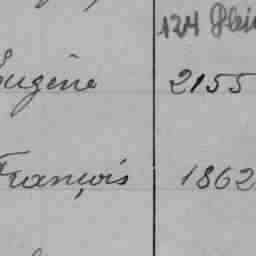 124
Eugène 2155
François 1862